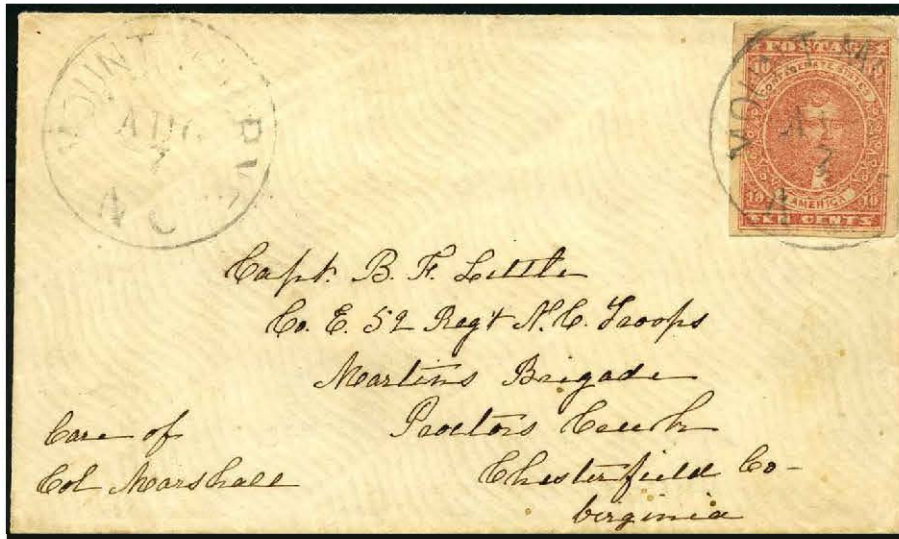 MOUNT
AUG
7
N C
POSTAGE
10
CONFEDERATE STATES
AUG
7
OF AMERICA
10 10
TEN CENTS
Capt. B. F. Little
Co. E. 52 Reg't N.C. Troops
Martins Brigade
Proctors Creek
Chesterfield Co-
Virginia
Care of
Col Marshall